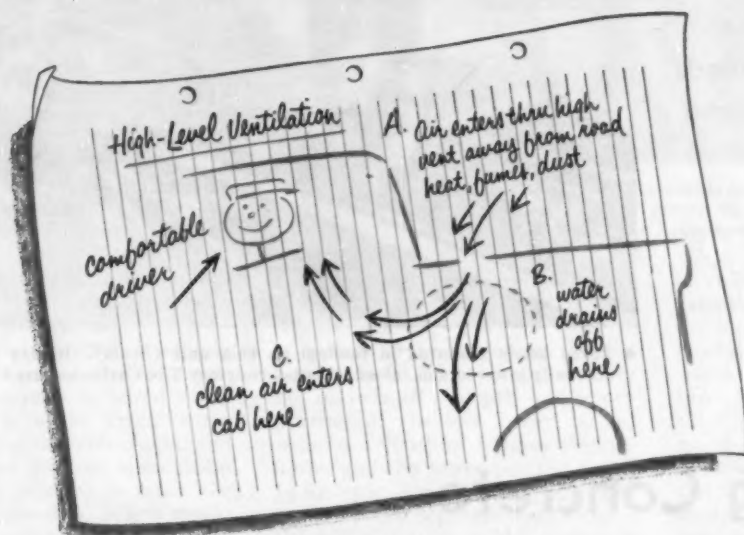 High-Level Ventilation
A. Air enters thru high
vent away from road
heat, fumes, dust
comfortable
driver
B.
water
drains
off
here
C.
clean air enters
cab here
g Concrete